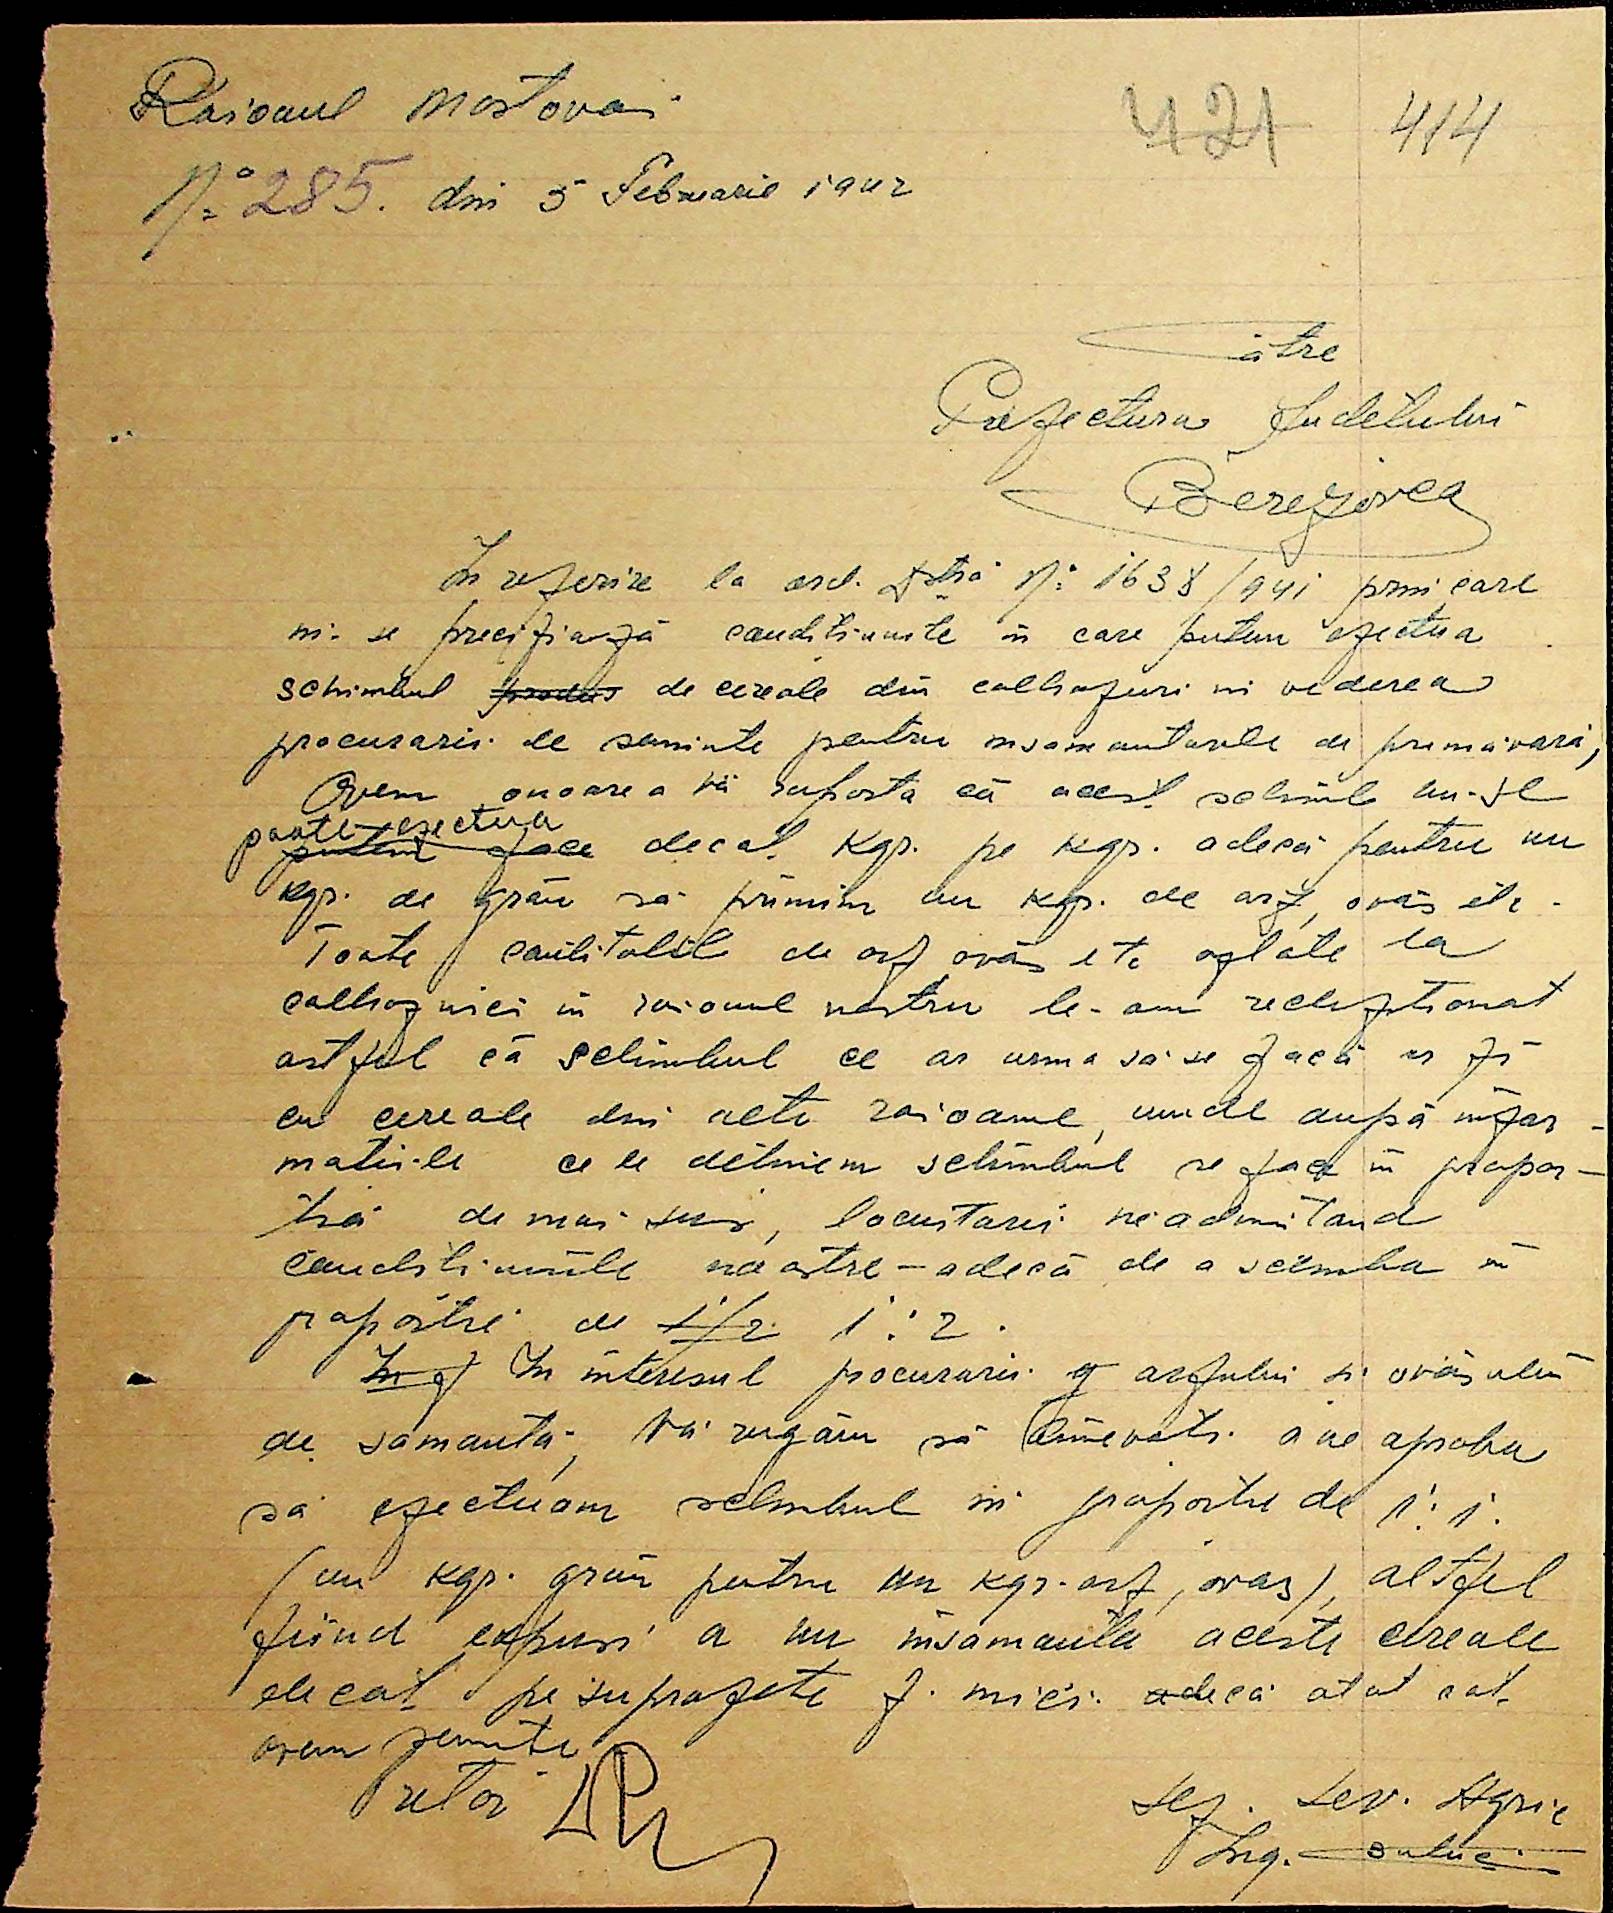 Raionul Mostovoi
421 414
No 285. din 5 Februarie 1942
Către
Prefectura Județului
Berezovca
In referire la ord. Dtră No 1638/941 prin care
ni-se precizează condițiunile in care putem efectua
schimbul produs de cereale din colhozuri in vederea
procurarii de seminte pentru insamantarile de primăvară,
Avem onoare a vă raporta că acest schimb nu-se
poate efectua
putem face decat kgr. pe kgr. adecă pentru un
kgr. de grău să primim un kgr. de orz, ovăs etc.
Toate cantitatile de orz ovăs etc aflate la
colhoznici in raionul nostru le-am rechizitionat
astfel că schimbul ce ar urma să se facă ar fi
cu cereale din alte raioane, unde după infor-
matiile ce le detinem schimbul se face in propor-
tia de mai sus, locuitorii neadmitand
conditiunile noastre - adecă de a scimba in
proportie de 1/2 1:2.
In In interesul procurarii orzului si ovăsului
de samanta, Vă rugăm să binevoiti a ne aproba
să efectuam schimbul in proportie de 1:1.
(un kgr. grău pentru un kgr. orz, ovas), altfel
fiind expusi a nu insamanta aceste cereale
decat pe suprafete f. mici. adecă atat cat
avem seminte
Pretor
Sef. Serv. Agric
Ing.